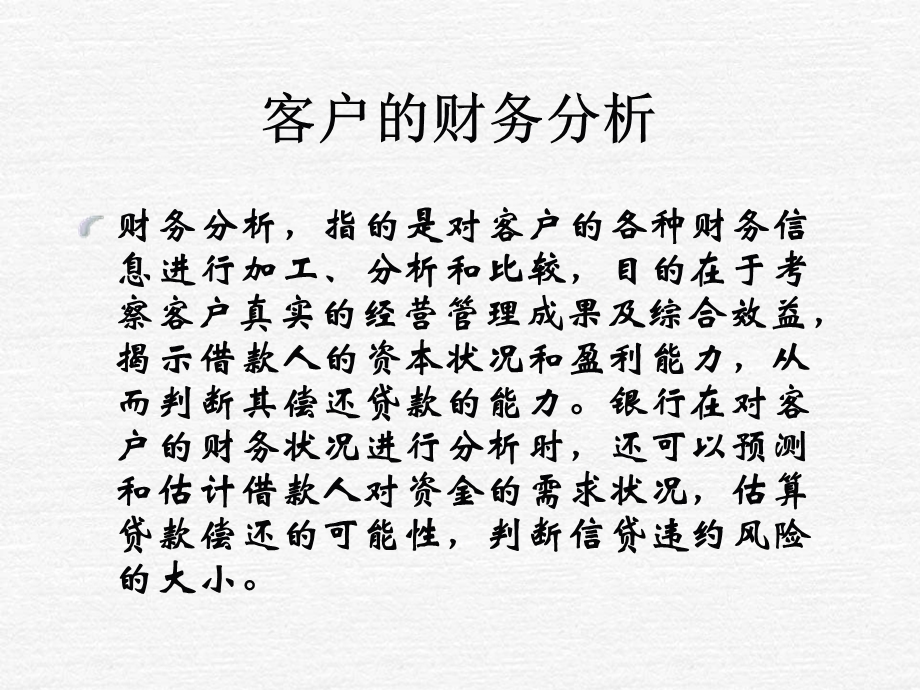 客户的财务分析
财务分析，指的是对客户的各种财务信
息进行加工、分析和比较，目的在于考
察客户真实的经营管理成果及综合效益，
揭示借款人的资本状况和盈利能力，从
而判断其偿还贷款的能力。银行在对客
户的财务状况进行分析时，还可以预测
和估计借款人对资金的需求状况，估算
贷款偿还的可能性，判断信贷违约风险
的大小。